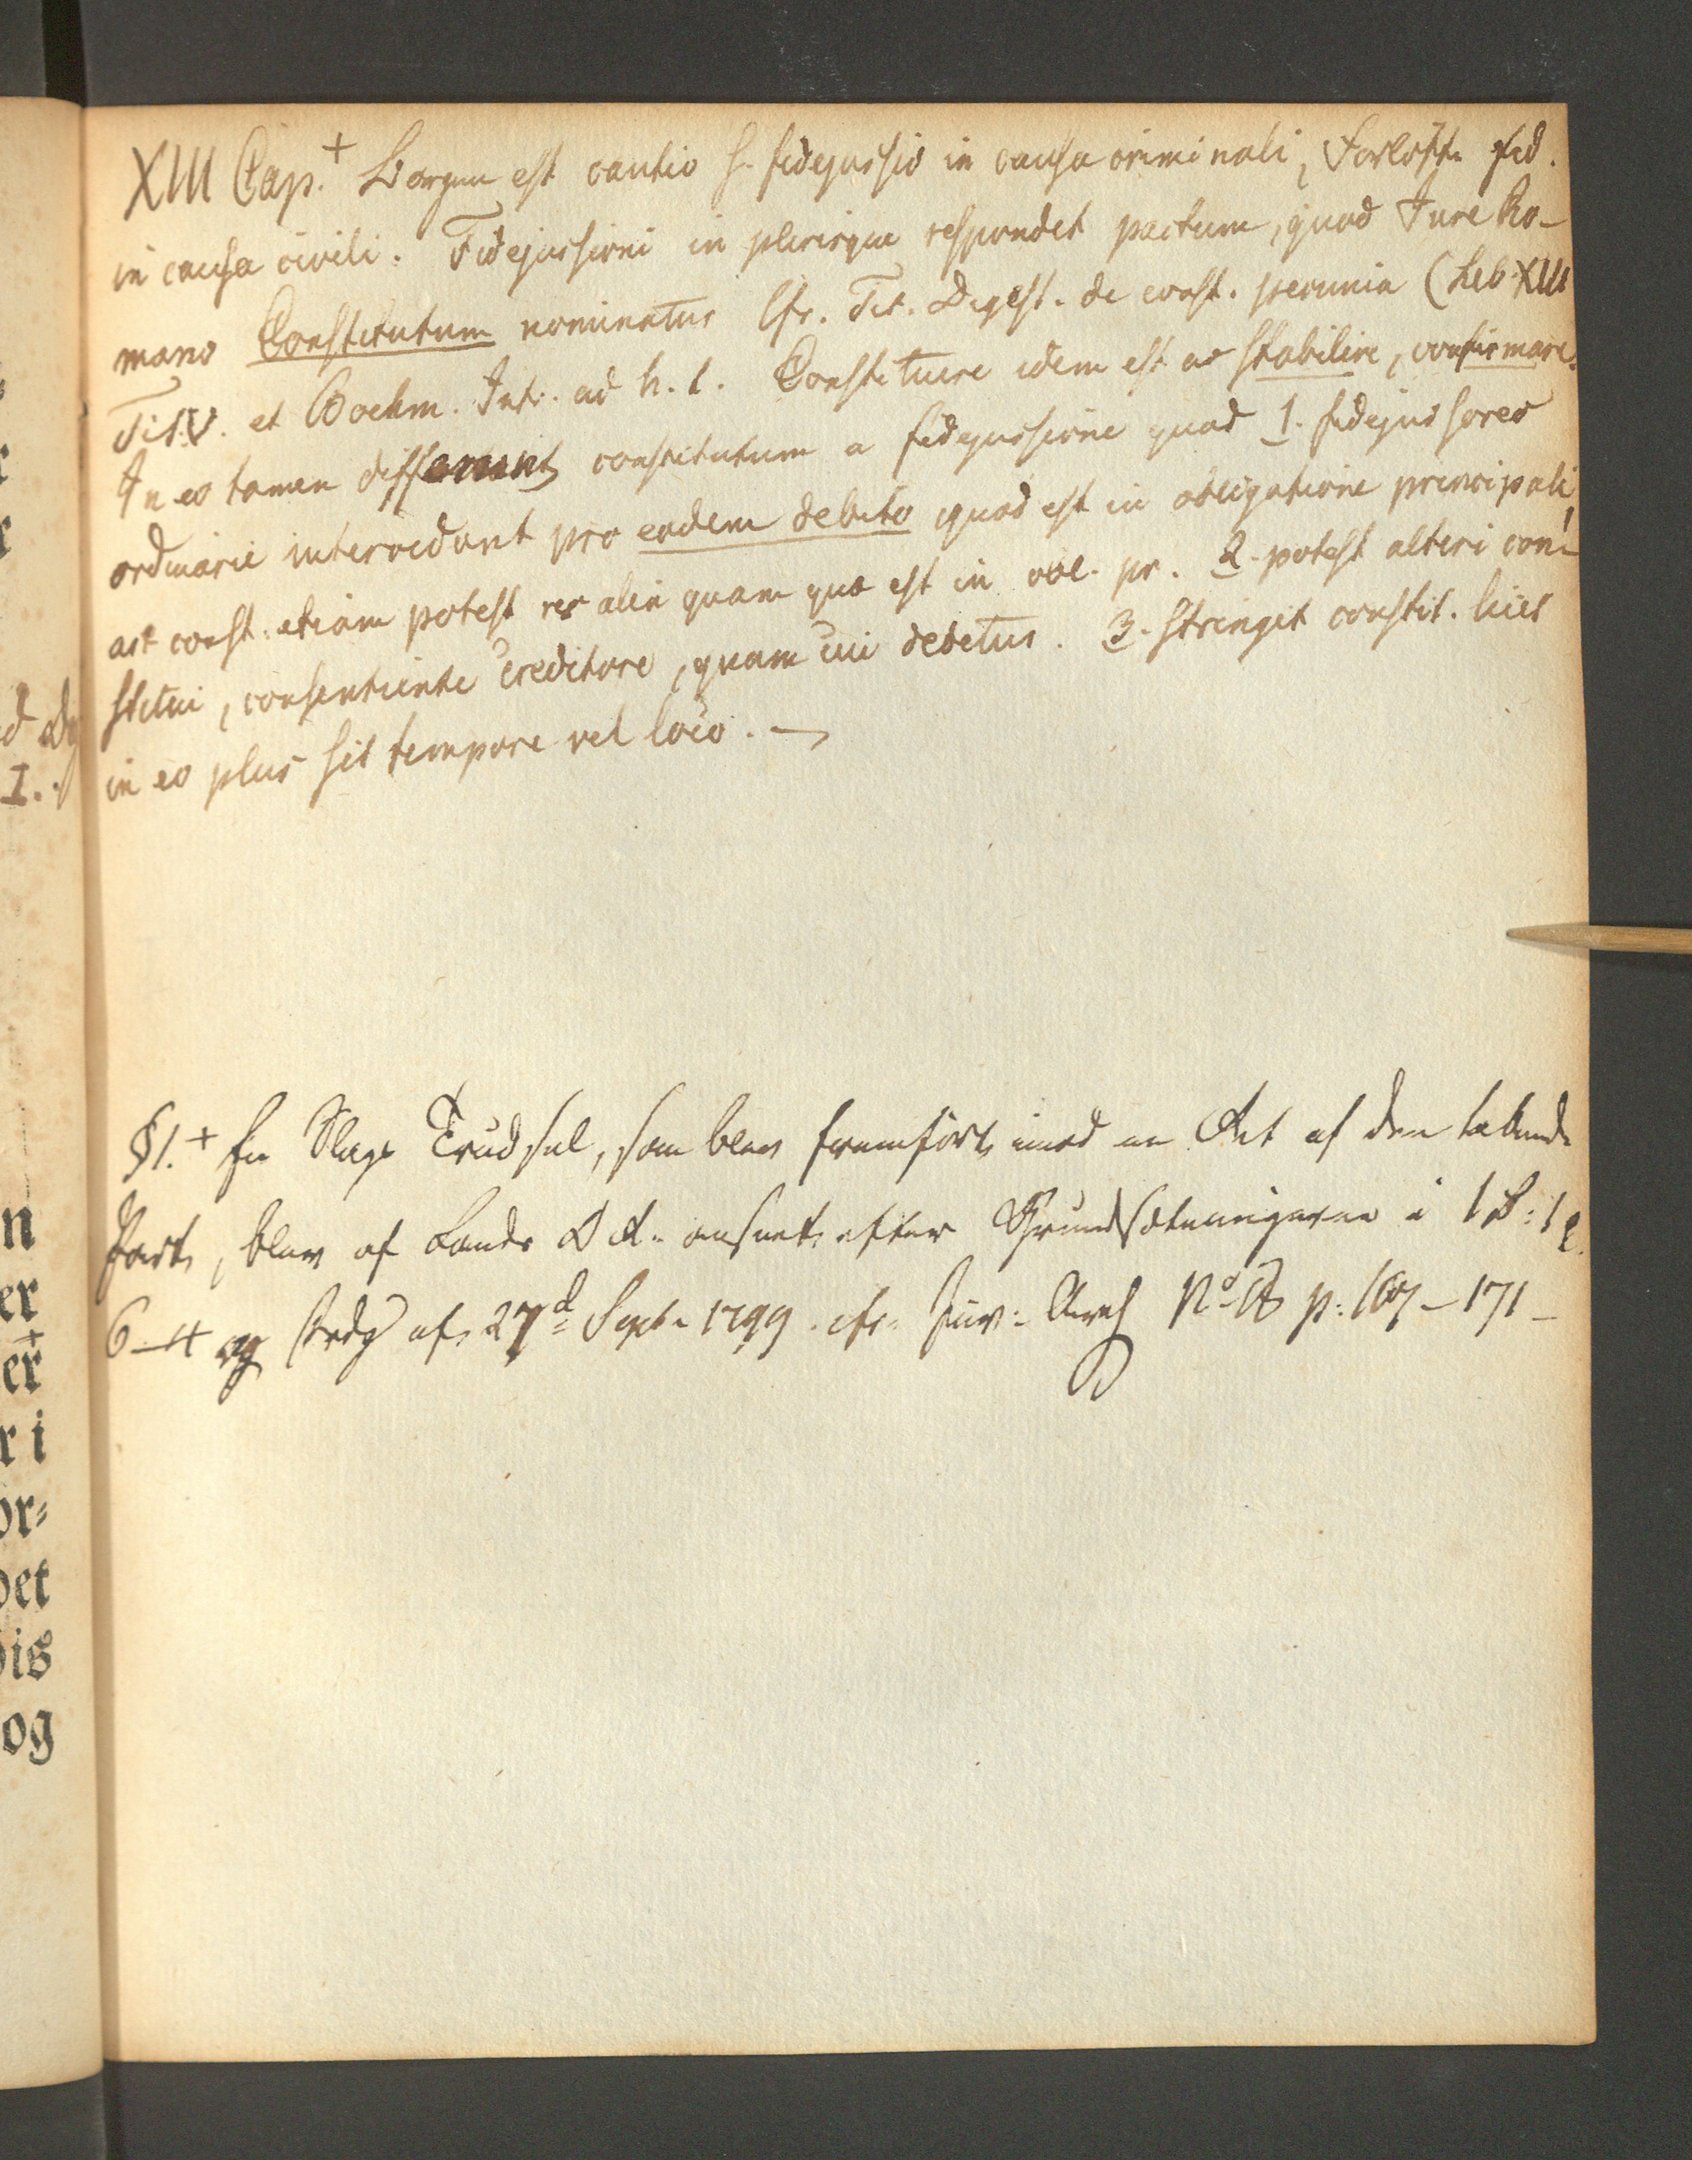 XIII Cap.+ Borgen est cautio s. fidejussio in causa criminali, Forlöfte fid.
in causa civili. Fidejussioni in plerisque respondet pactum, quod Jure Ro-
mano Constitutum nominatur Cfr. Tit. Digest. de const. pecunia (Lib. XIII
Tit. V. et Boehm. Intr. ad h. t. Constituere idem est ac stabilire, confirmare.
In eo tamen differunt constitutum a fidejussione quod 1. fidejussores
ordinarie intercedunt pro eodem debito quod est in obligatione principali,
ast const. etiam potest res alia quam quæ est in obl. pr. 2. potest alteri con-
stitui, consentiente creditore, quam cui debetur. 3. stringit constit. licet
in eo plus sit tempore vel loco. —
§1.+ En Slags Trudsel, som blev fremført imod en Ret af den tabende
Part, blev af Lands O R. anseet efter Grundsætningerne i 1 B: 1 C.
6–4 og Frdg af 27d Sept. 1799. cfr. Jur: Arch No 18 p: 167–171–
d
I.
n
er
er+
r i
or=
det
dis
og